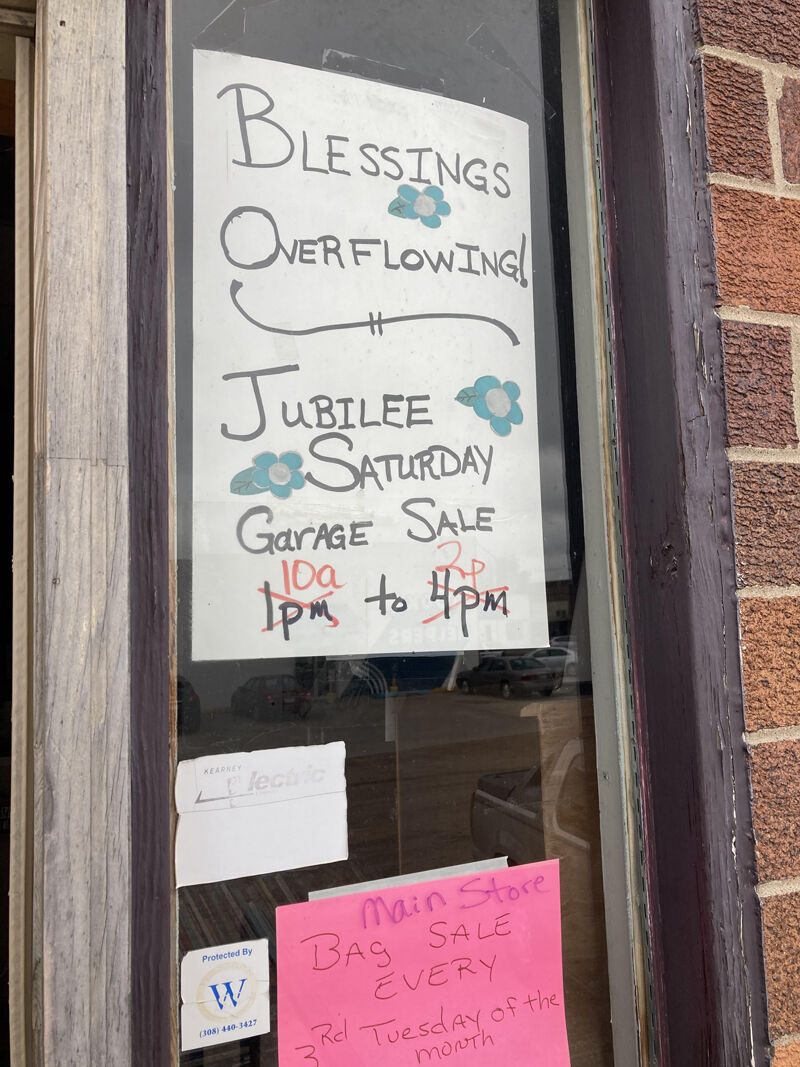 BLESSINGS
OVERFLOWING!
JUBILEE
SATURDAY
GarAGE SALE
10a 2p
1pm to 4pm
KEARNEY
lectric
Main Store
BAG SALE
EVERY
3Rd Tuesday of the
month
Protected By
W
(308) 440-3427